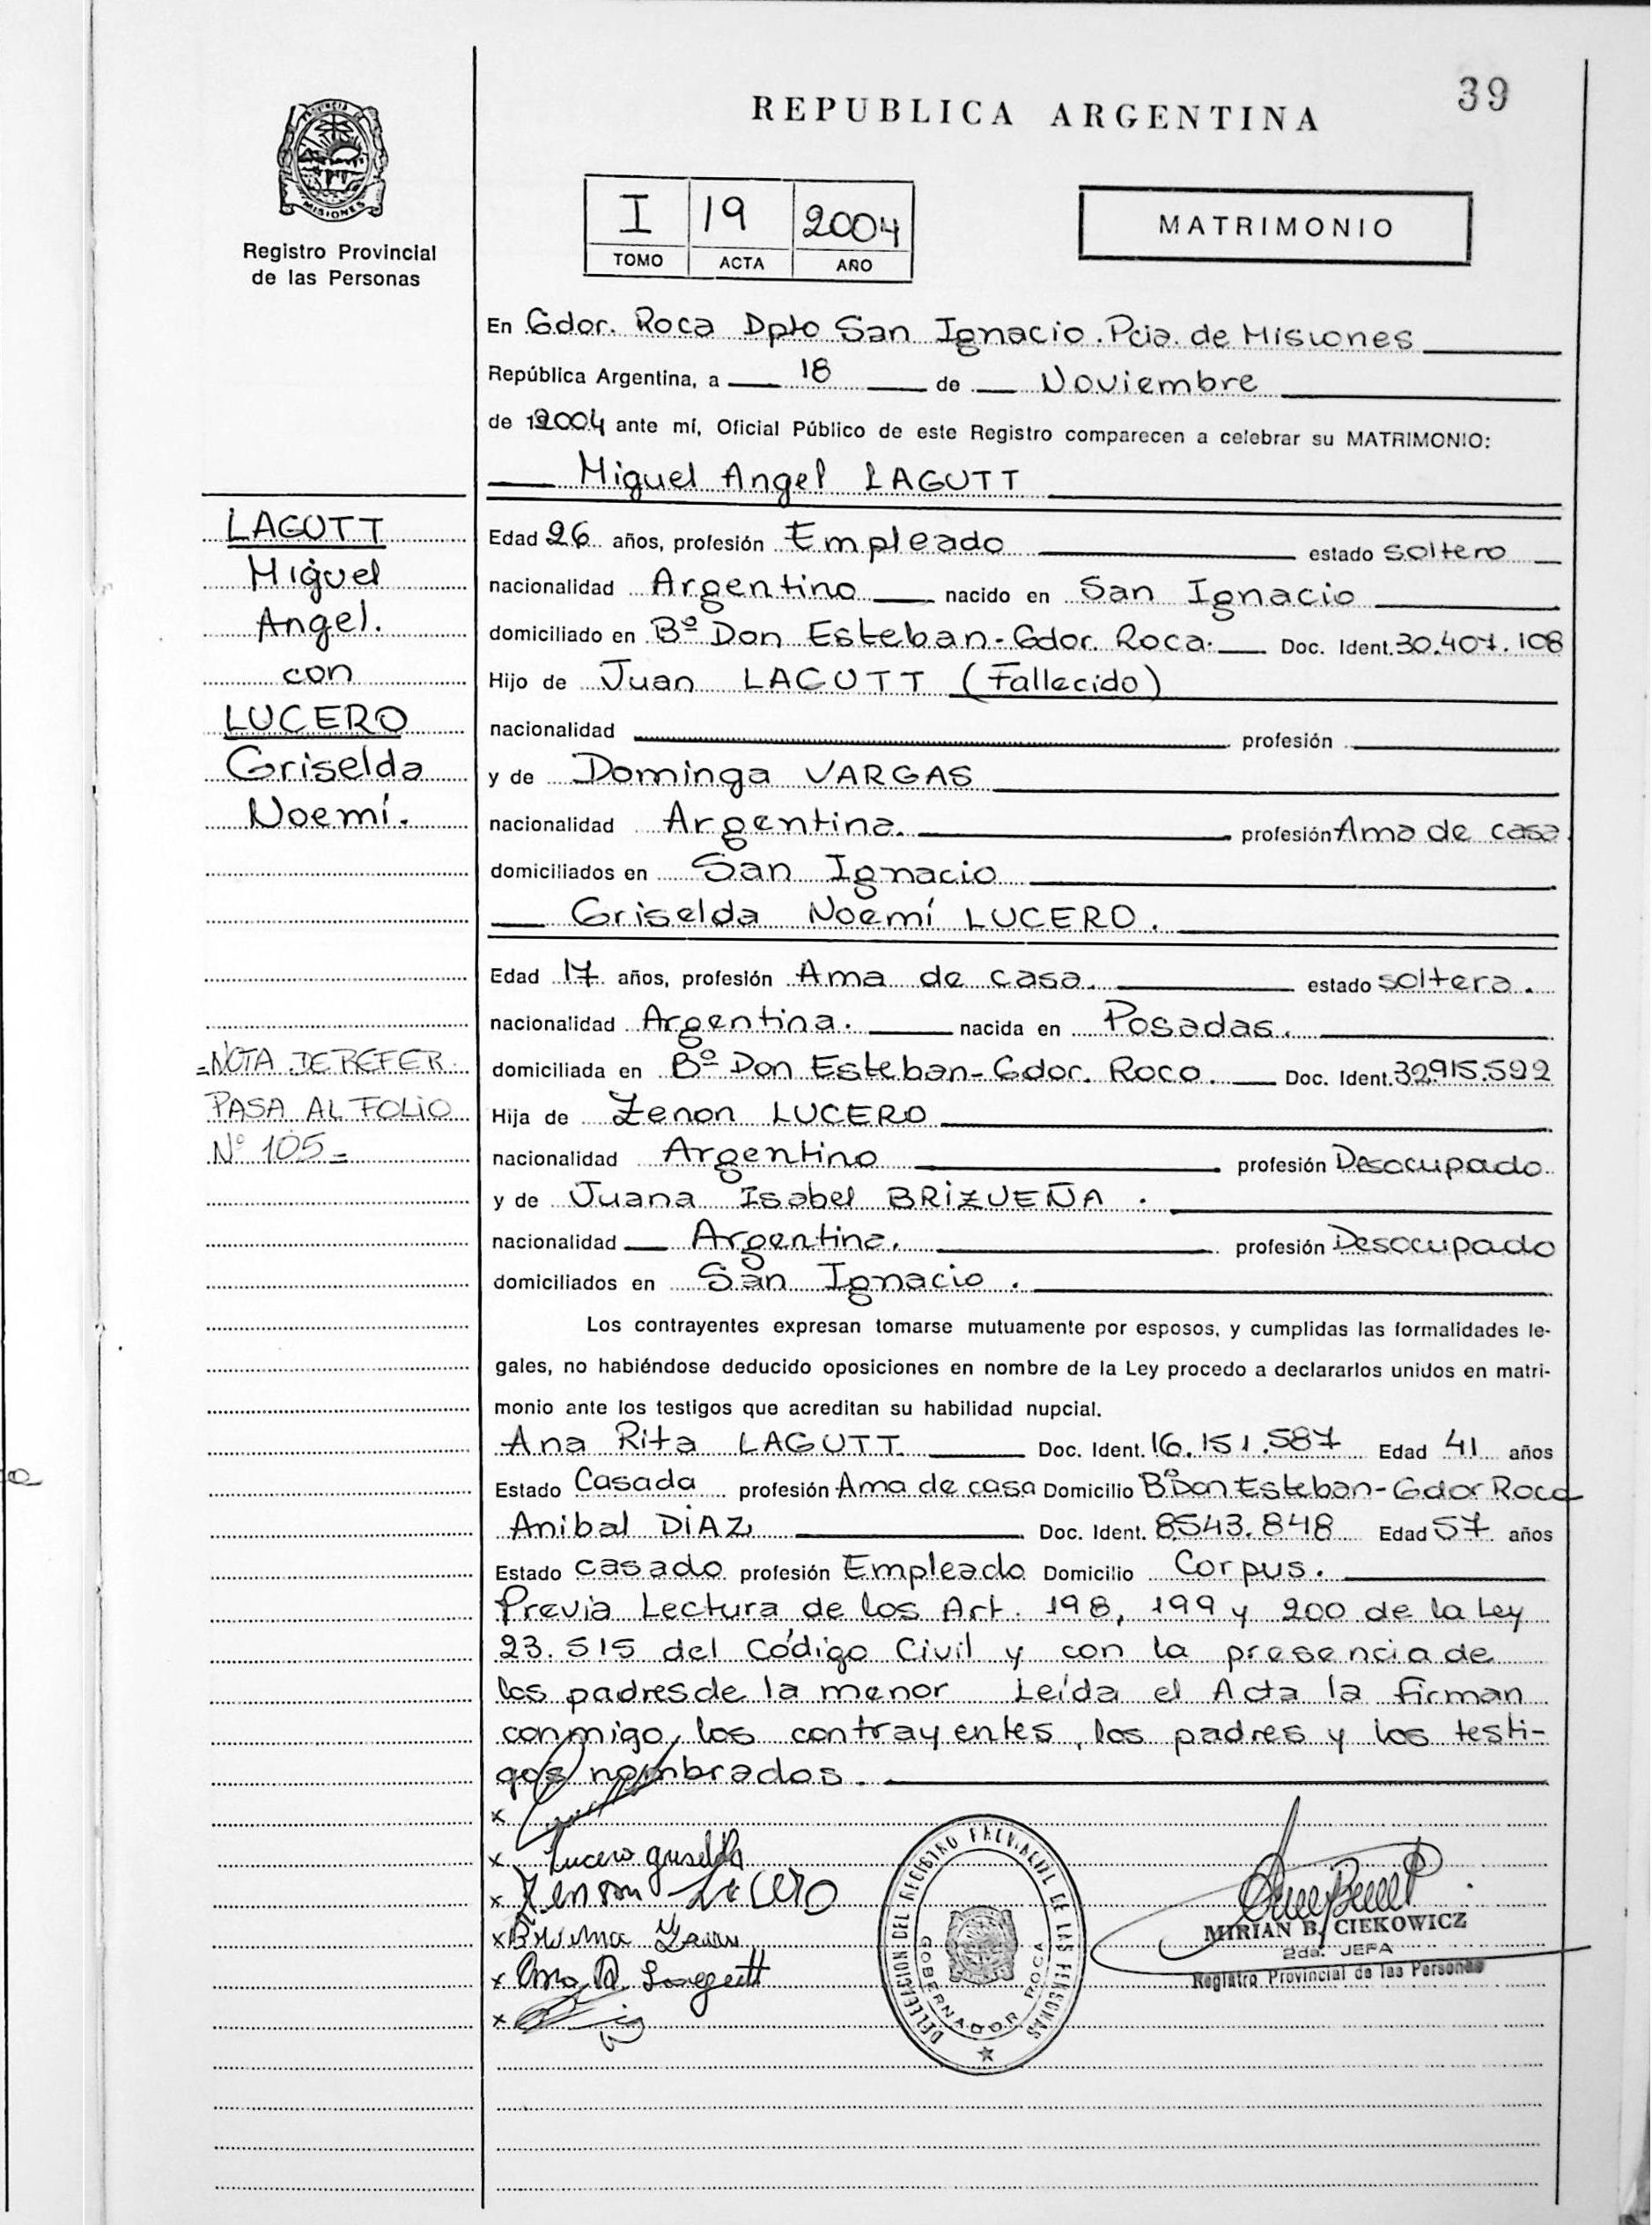 39
REPUBLICA ARGENTINA
PROVINCIA
MISIONES
Registro Provincial
de las Personas
I 19 2004
TOMO ACTA AÑO
MATRIMONIO
En Gdor. Roca Dpto San Ignacio. Pcia. de Misiones
República Argentina, a 18 de Noviembre
de 2004 ante mí, Oficial Público de este Registro comparecen a celebrar su MATRIMONIO:
Miguel Angel LAGUTT
Edad 26 años, profesión Empleado estado soltero
nacionalidad Argentino nacido en San Ignacio
domiciliado en Bº Don Esteban-Gdor. Roca. Doc. Ident. 30.407.108
Hijo de Juan LAGUTT (Fallecido)
nacionalidad profesión
y de Dominga VARGAS
nacionalidad Argentina. profesión Ama de casa.
domiciliados en San Ignacio
Griselda Noemí LUCERO.
Edad 17 años, profesión Ama de casa. estado soltera.
nacionalidad Argentina. nacida en Posadas.
domiciliada en Bº Don Esteban-Gdor. Roca. Doc. Ident. 32.915.592
Hija de Zenon LUCERO
nacionalidad Argentino profesión Desocupado
y de Juana Isabel BRIZUEÑA.
nacionalidad Argentina. profesión Desocupado
domiciliados en San Ignacio.
Los contrayentes expresan tomarse mutuamente por esposos, y cumplidas las formalidades le-
gales, no habiéndose deducido oposiciones en nombre de la Ley procedo a declararlos unidos en matri-
monio ante los testigos que acreditan su habilidad nupcial.
Ana Rita LAGUTT Doc. Ident. 16.151.587 Edad 41 años
Estado Casada profesión Ama de casa Domicilio Bº Don Esteban-Gdor Roca
Anibal DIAZ Doc. Ident. 8543.848 Edad 57 años
Estado casado profesión Empleado Domicilio Corpus.
Previa Lectura de los Art. 198, 199 y 200 de la Ley
23.515 del Código Civil y con la presencia de
los padres de la menor Leída el Acta la firman
conmigo, los contrayentes, los padres y los testi-
gos nombrados.
x
x Lucero Griselda
x Zenon LUCERO
x
x Ana R Lagutt
x
DELEGACION DEL REGISTRO PROVINCIAL DE LAS PERSONAS
GOBERNADOR ROCA
MIRIAN B. CIEKOWICZ
2da. JEFA
Registro Provincial de las Personas
LAGUTT
Miguel
Angel.
con
LUCERO
Griselda
Noemí.
=NOTA DE REFER.
PASA AL FOLIO
Nº 105=